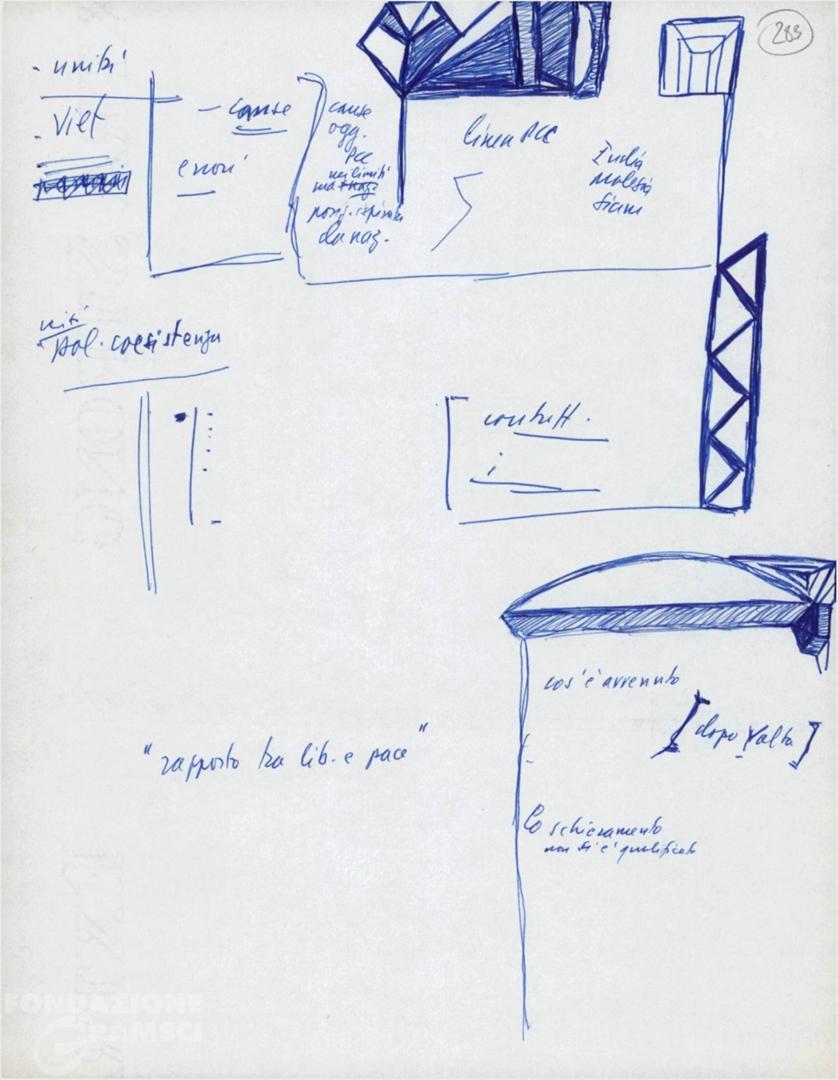 283
- unità
- Viet
- cause
errori
cause
ogg.
PCC
nei limiti
da naz.
linea PCC
India
Malesia
Siam
pol. coesistenza
i
cos'è avvenuto
[dopo Yalta]
"rapporto tra lib. e pace"
Lo schieramento
non si è qualificato
FONDAZIONE
GRAMSCI